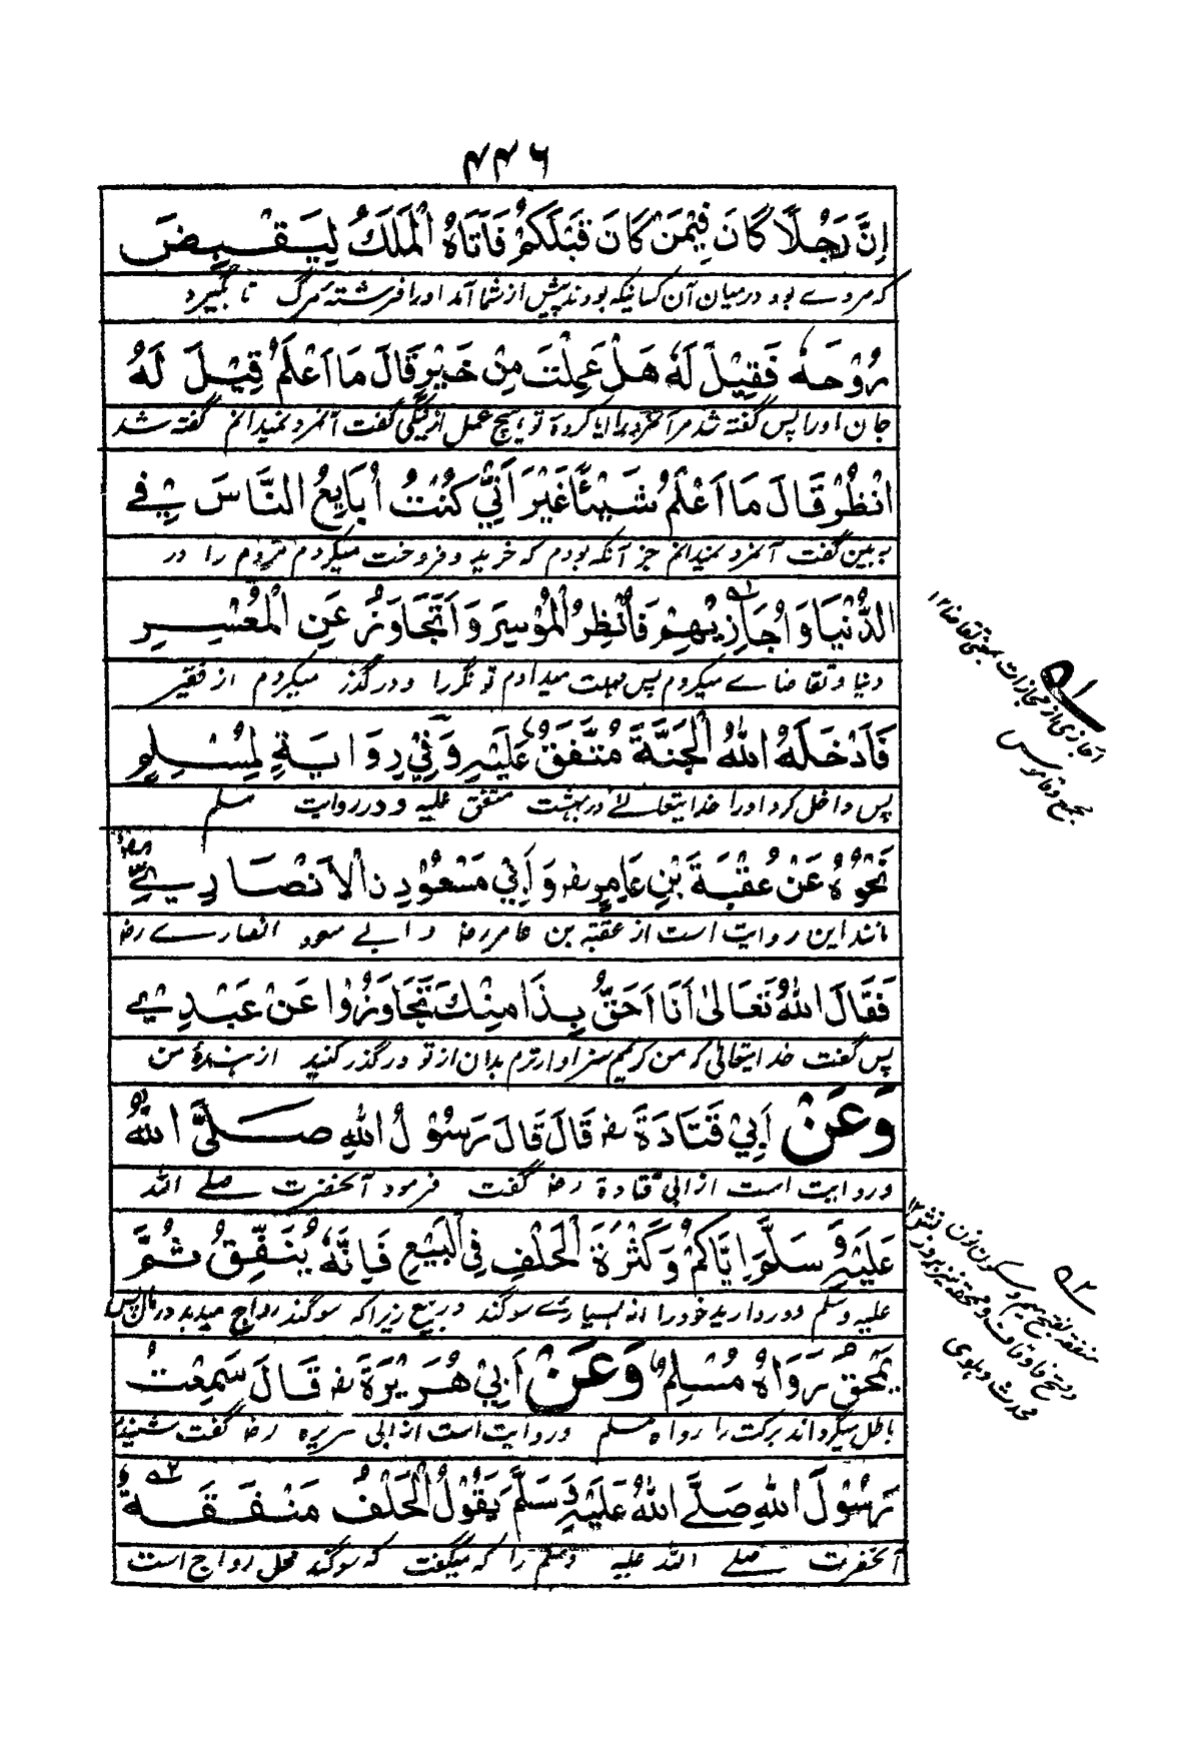 ۴۴۶
اِنَّ رَجُلًا كَانَ فِيْمَنْ كَانَ قَبْلَكُمْ فَاَتَاهُ الْمَلَكُ لِيَقْبِضَ
كه مردے بود درمیان آن کسانیکه بودند پیش از شما آمد اورا فرشتهٔ مرگ تا بگیرد
رُوْحَهٗ فَقِيْلَ لَهٗ هَلْ عَمِلْتَ مِنْ خَيْرٍ قَالَ مَا اَعْلَمُ قِيْلَ لَهُ
جان اورا پس گفته شد مر آنمرد را ایا کردهٔ تو ہیچ عمل از نیکی گفت آنمرد نمیدانم گفته شد
انْظُرْ قَالَ مَا اَعْلَمُ شَيْئًا غَيْرَ اَنِّيْ كُنْتُ اُبَايِعُ النَّاسَ فِي
به بین گفت آنمرد نمیدانم جز آنکه بودم که خرید و فروخت میکردم مردم را در
الدُّنْيَا وَ اُجَازِيْهِمْ فَاُنْظِرُ الْمُوْسِرَ وَ اَتَجَاوَزُ عَنِ الْمُعْسِرِ
دنیا و تقاضاے میکردم پس مهلت میدادم تونگر را و درگذر میکردم از فقیر
فَاَدْخَلَهُ اللّٰهُ الْجَنَّةَ مُتَّفَقٌ عَلَيْهِ وَفِيْ رِوَايَةٍ لِمُسْلِمٍ
پس داخل کرد اورا خدایتعالے در بهشت متفق علیه و در روایت مسلم
نَحْوُهٗ عَنْ عُقْبَةَ بْنِ عَامِرٍ رض وَ اَبِيْ مَسْعُوْدٍ نِ الْاَنْصَارِيِّ رض
مانند این روایت است از عقبه بن عامر رض و ابے مسعود انصارے رض
فَقَالَ اللّٰهُ تَعَالٰى اَنَا اَحَقُّ بِذَا مِنْكَ تَجَاوَزُوْا عَنْ عَبْدِيْ
پس گفت خدایتعالی که من کریم سزاوارترم بدان از تو درگذر کنید از بندهٔ من
وَعَنْ اَبِيْ قَتَادَةَ رض قَالَ قَالَ رَسُوْلُ اللّٰهِ صَلَّى اللّٰهُ
و روایت است از ابی قتادة رض گفت فرمود آنحضرت صلے الله
عَلَيْهِ وَ سَلَّمَ اِيَّاكُمْ وَ كَثْرَةَ الْحَلْفِ فِي الْبَيْعِ فَاِنَّهٗ يُنَفِّقُ ثُمَّ
علیه وسلم دور دارید خود را از بسیارے سوگند در بیع زیراکه سوگند رواج میدهد در مال پس
يَمْحَقُ رَوَاهُ مُسْلِمٌ وَعَنْ اَبِيْ هُرَيْرَةَ رض قَالَ سَمِعْتُ
باطل میگرداند برکت را رواه مسلم و روایت است از ابی هریره رض گفت شنیدم
رَسُوْلَ اللّٰهِ صَلَّى اللّٰهُ عَلَيْهِ وَ سَلَّمَ يَقُوْلُ الْحَلْفُ مَنْفَقَةٌ
آنحضرت صلے الله علیه وسلم را که میگفت که سوگند محل رواج است
۱
اجازی از مجازات بمعنی تقاضا ۱۲
مجمع و قاموس
۲
منفقه بفتح میم و سکون نون
و فتح فا و قاف و محقه نیز بر وزن ۱۲
محدث دہلوی